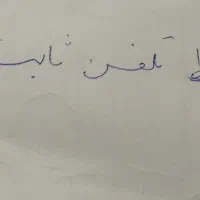 تلفن ثابت